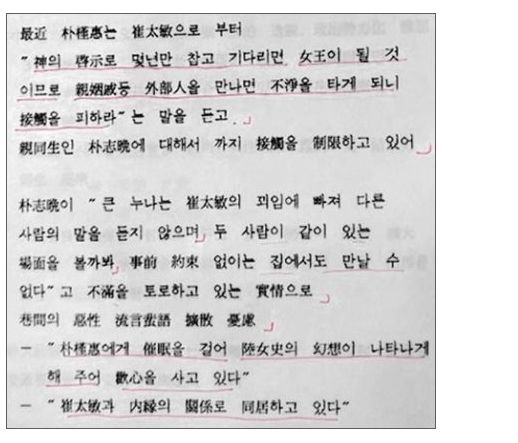 最近 朴槿惠는 崔太敏으로 부터
"神의 啓示로 몇년만 참고 기다리면 女王이 될 것
이므로 親姻戚등 外部人을 만나면 不淨을 타게 되니
接觸을 피하라"는 말을 듣고
親同生인 朴志晩에 대해서 까지 接觸을 制限하고 있어
朴志晩이 "큰 누나는 崔太敏의 꾀임에 빠져 다른
사람의 말을 듣지 않으며 두 사람이 같이 있는
場面을 볼까봐 事前 約束 없이는 집에서도 만날 수
없다"고 不滿을 토로하고 있는 實情으로
巷間의 惡性 流言蜚語 擴散 憂慮
- "朴槿惠에게 催眠을 걸어 陸女史의 幻想이 나타나게
해 주어 歡心을 사고 있다"
- "崔太敏과 内縁의 關係로 同居하고 있다"